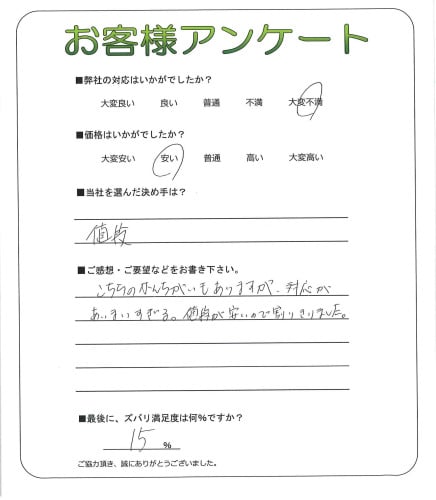 お客様アンケート
■弊社の対応はいかがでしたか？
大変良い 良い 普通 不満 大変不満
■価格はいかがでしたか？
大変安い 安い 普通 高い 大変高い
■当社を選んだ決め手は？
値段
■ご感想・ご要望などをお書き下さい。
こちらのかんちがいもありますが、対応が
あいまいすぎる。値段が安いので割りきりました。
■最後に、ズバリ満足度は何%ですか？
15 %
ご協力頂き、誠にありがとうございました。